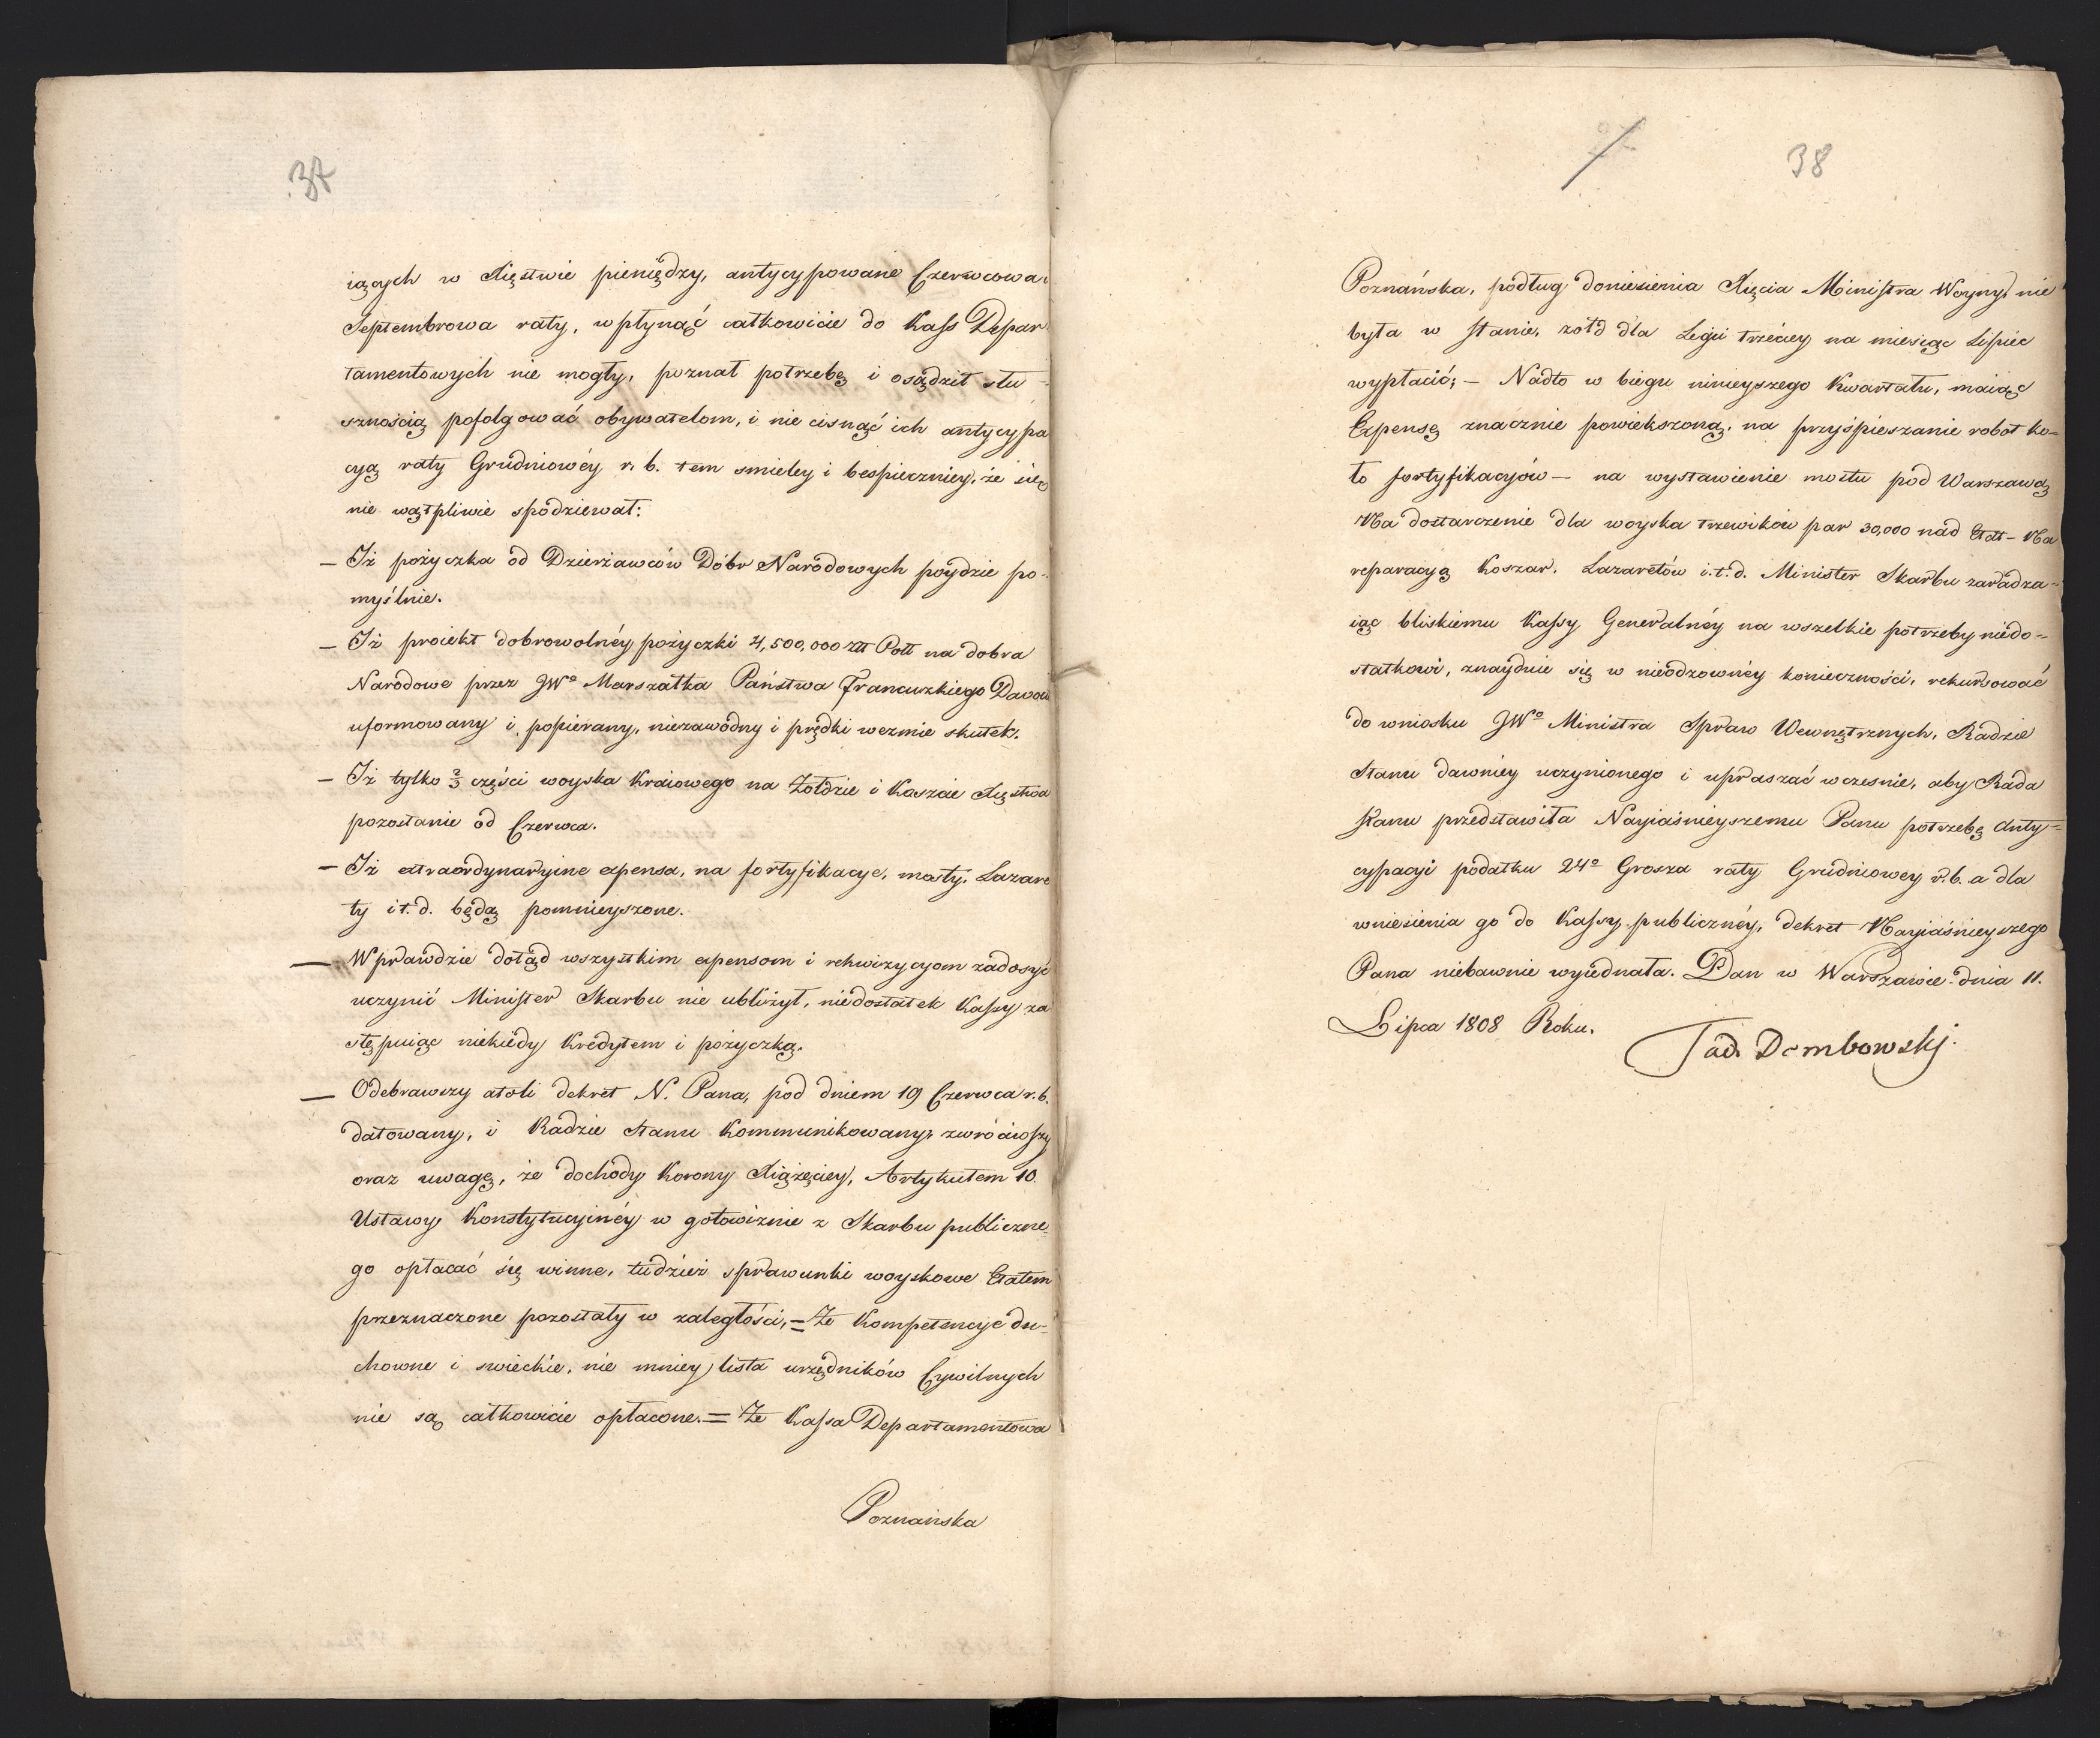 37
iących w Xięstwie pieniędzy, antycypowane Czerwcowa i
Septembrowa raty, wpłynąć całkowicie do Kass Depar
tamentowych nie mogły, poznał potrzebę i osądził słu-
sznością pofolgować obywatelom, i nie cisnąć ich antycypa
cyą raty Grudniowéy r. b. tem smieley i bespieczniey, że się
nie wątpliwie spodziewał:
— Iż pożyczka od Dzierżawców Dóbr Narodowych poydzie po-
myślnie.
— Iż proiekt dobrowolnéy pożyczki 4,500,000 złł Poll na dobra
Narodowe przez JWo Marszałka Państwa Francuzkiego Davou
uformowany i popierany, niezawodny i prędki wezmie skutek.
— Iż tylko 2/3 części woyska Kraiowego na Żołdzie i Koszcie Xięstwa
pozostanie od Czerwca.
— Iż extraordynaryine expensa, na fortyfikacye, mosty, Lazare
ty i t. d. będą pomnieyszone.
— Wprawdzie dotąd wszystkim expensom i rekwizycyom zadosyć
uczynić Minister Skarbu nie ubliżył, niedostatek Kassy za
stępuiąc niekiedy Kredytem i pożyczką.
— Odebrawszy atoli dekret N. Pana, pod dniem 19 Czerwca r. b.
datowany, i Radzie Stanu Kommunikowany, zwróciwszy
oraz uwagę, że dochody Korony Xiążęciey, Artykułem 10
Ustawy Konstytucyinéy w gotowiznie z Skarbu publiczne
go opłacać się winne, tudzież sprawunki woyskowe Etatem
przeznaczone pozostały w zaległości, = Że Kompetencye du-
chowne i swieckie, nie mniey lista urzędników Cywilnych
nie są całkowicie opłacone. = Że Kassa Departamentowa
Poznańska
38
Poznańska, podług doniesienia Xięcia Ministra Woyny, nie
była w stanie, żołd dla Legii trzeciey na miesiąc Lipiec
wypłacić; — Nadto w biegu ninieyszego Kwartału, maiąc
Expensę znacznie powiekszoną, na przyśpieszanie robot ko-
ło fortyfikacyów — na wystawienie mostu pod Warszawą
Na dostarczenie dla woyska trzewików par 30,000 nad Etat — Na
reparacyą Koszar, Lazaretów i. t. d. Minister Skarbu zaradza-
iąc bliskiemu Kassy Generalnéy na wszelkie potrzeby niedo-
statkowi, znayduie się w nieodzownéy konieczności, rekursować
do wniosku JWo Ministra Spraw Wewnętrznych, Radzie
Stanu dawniey uczynionego i upraszać wczesnie, aby Rada
Stanu przedstawiła Nayiaśnieyszemu Panu potrzebę Anty=
cypacyi podatku 24o Grosza raty Grudniowey r. b. a dla
wniesienia go do Kassy publicznéy, dekret Nayiaśnieyszego
Pana niebawnie wyiednała. Dan w Warszawie dnia 11.
Lipca 1808 Roku.
Tad. Dembowskj.